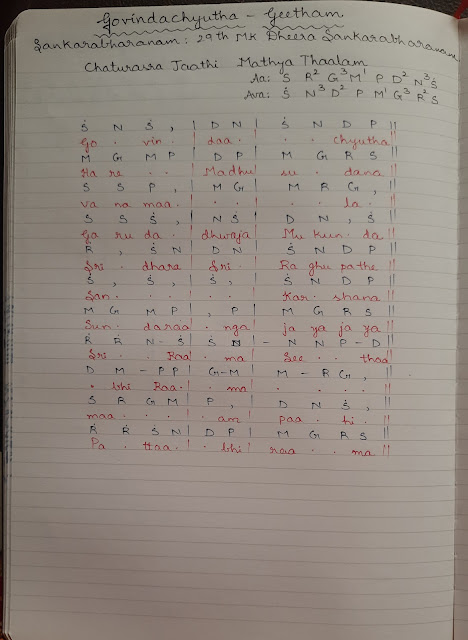 Govindachyutha - Geetham
Sankarabharanam : 29th MK Dheera Sankarabharanam
Chaturasra Jaathi Mathya Thaalam
Aa: S R² G³ M¹ P D² N³ Ṡ
Ava: Ṡ N³ D² P M¹ G³ R² S
Ṡ N Ṡ , | D N | Ṡ N D P ||
Go . vin . | daa . | . . chyutha ||
M G M P | D P | M G R S ||
Ha re . . | Madhu | su . dana ||
S S P , | M G | M R G , ||
va na maa . | . . | . . la . ||
S S Ṡ , | N Ṡ | D N , Ṡ ||
Ga ru da . | dhwaja | Mu kun . da ||
Ṙ , Ṡ N | D N | Ṡ N D P ||
Sri . dhara | Sri . | Ra ghu pathe ||
Ṡ , Ṡ , | Ṡ , | Ṡ N D P ||
San . . . | . . | Kar . shana ||
M G M P | , P | M G R S ||
Sun . daraa | . nga | ja ya ja ya ||
Ṙ Ṙ N - Ṡ | Ṡ N | - N N P - D ||
Sri . . Raa | . ma | See . . thaa ||
D M - P P | G - M | M - R G , ||
. bhi Raa . | . ma | . . . . ||
S R G M | P , | D N Ṡ , ||
maa . . . | . am | paa . hi . ||
Ṙ Ṙ Ṡ N | D P | M G R S ||
Pa . ttaa . | . bhi | raa . . ma ||